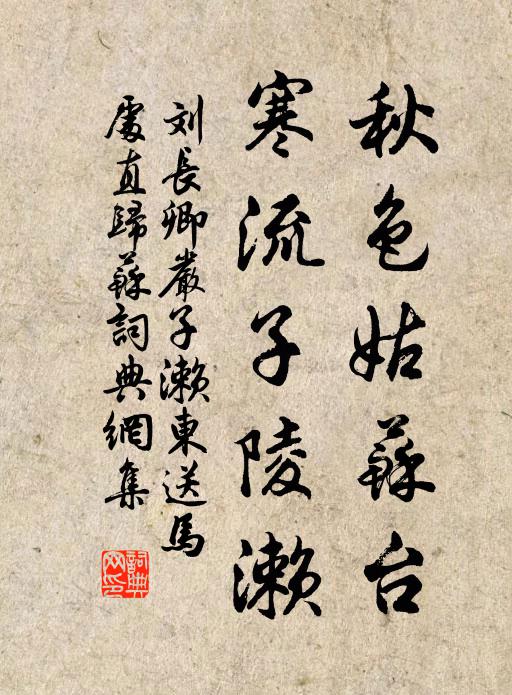 秋色姑蘇台
寒流子陵瀨
刘長卿嚴子瀨東送馬
處直歸蘇詞典網集
詞典
网印